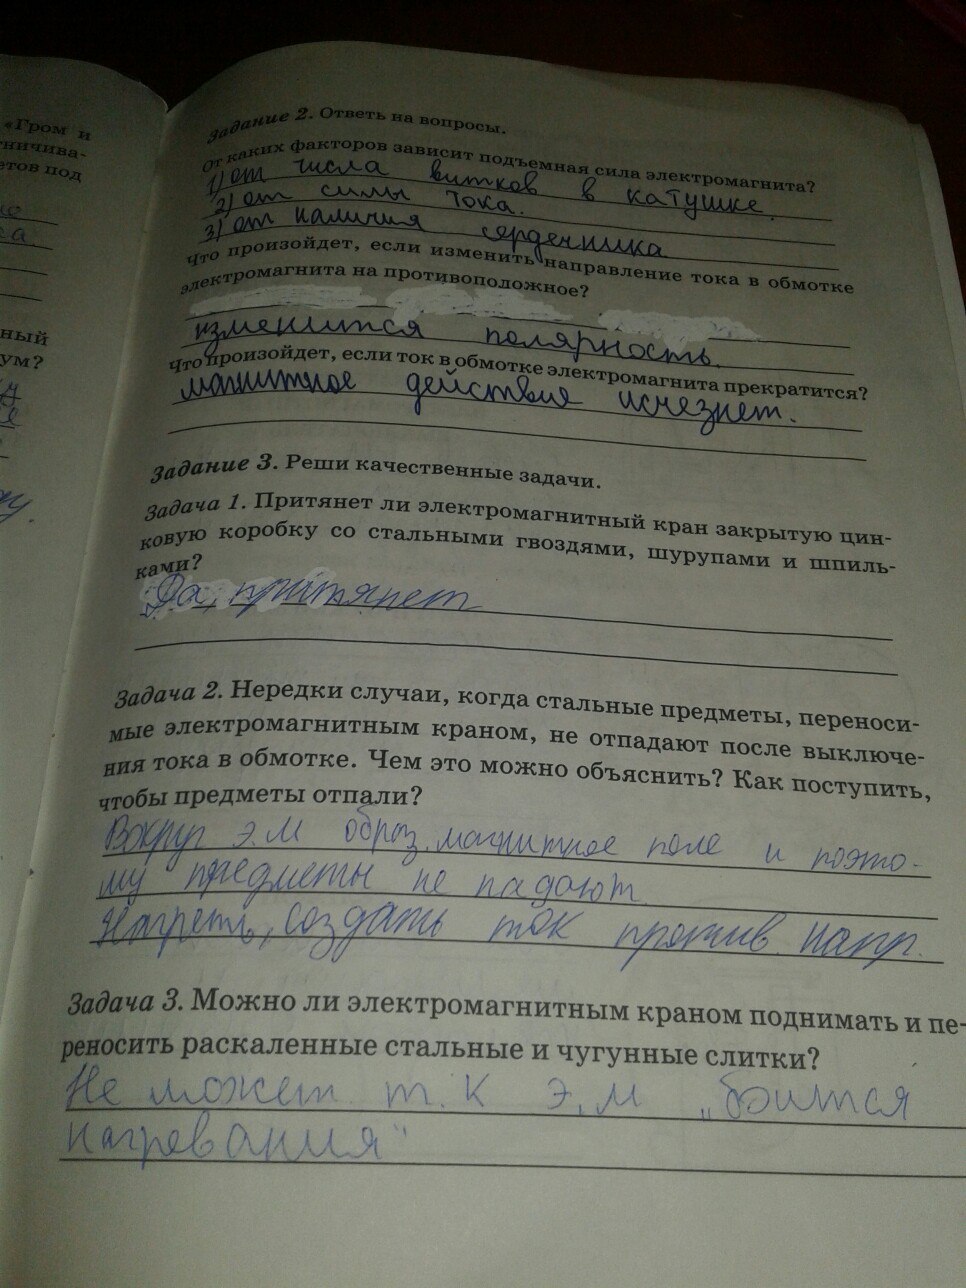 «Гром и
тничива-
етов под
ный
ум?
Задание 2. Ответь на вопросы.
От каких факторов зависит подъемная сила электромагнита?
1) от числа витков в катушке.
2) от силы тока.
3) от наличия сердечника
Что произойдет, если изменить направление тока в обмотке
электромагнита на противоположное?
изменится полярность.
Что произойдет, если ток в обмотке электромагнита прекратится?
магнитное действия исчезнет.
Задание 3. Реши качественные задачи.
Задача 1. Притянет ли электромагнитный кран закрытую цин-
ковую коробку со стальными гвоздями, шурупами и шпиль-
ками?
Да, притянет
Задача 2. Нередки случаи, когда стальные предметы, переноси-
мые электромагнитным краном, не отпадают после выключе-
ния тока в обмотке. Чем это можно объяснить? Как поступить,
чтобы предметы отпали?
Вокруг э.м образ. магнитное поле и поэто-
му предметы не падают.
Нагреть, создать ток против. напр.
Задача 3. Можно ли электромагнитным краном поднимать и пе-
реносить раскаленные стальные и чугунные слитки?
Не может т.к э.м „боится
нагревания"